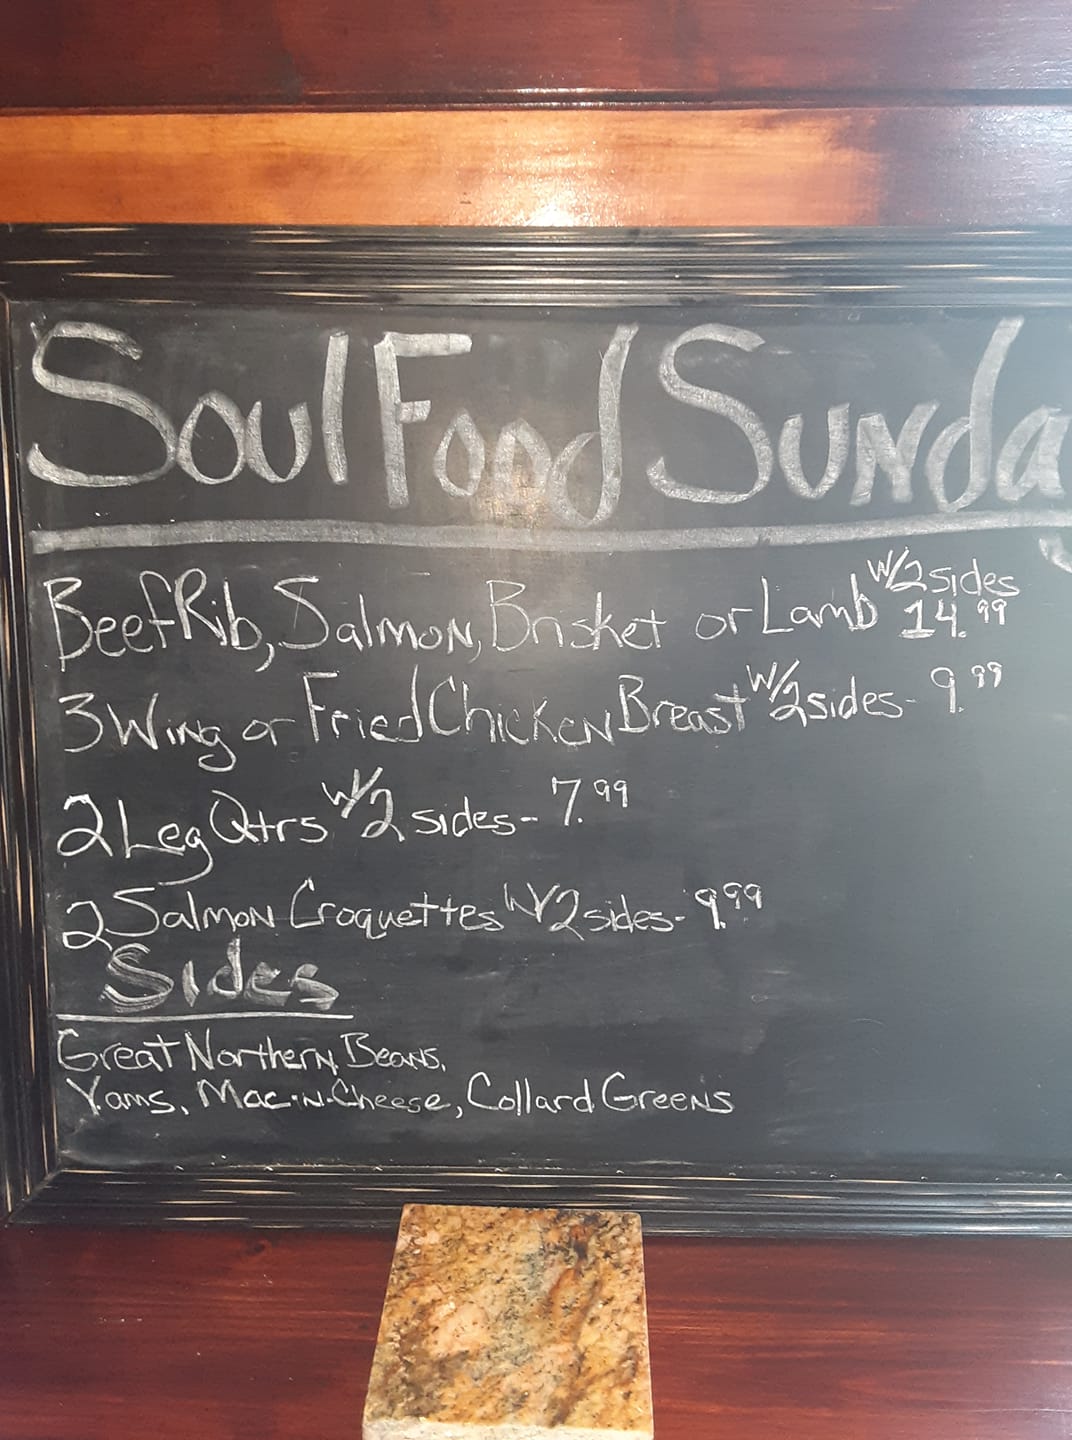 Soul Food Sunday
Beef Rib, Salmon, Brisket or Lamb w/2 sides 14.99
3 Wing or Fried Chicken Breast w/2 sides - 9.99
2 Leg Qtrs w/2 sides - 7.99
2 Salmon Croquettes w/2 sides - 9.99
Sides
Great Northern Beans,
Yams, Mac-N-Cheese, Collard Greens